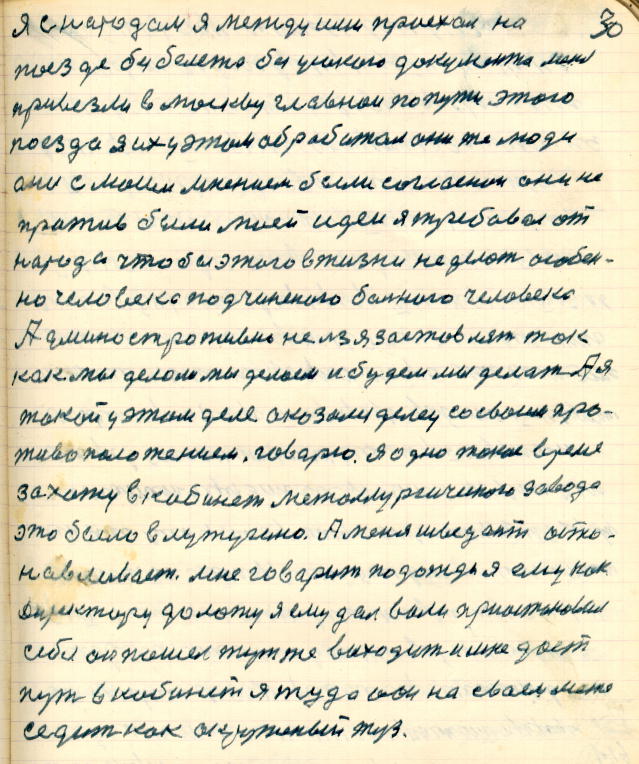 30
я с народам я между ими приехал на
поезде би белета би уиского документа меня
привезли в москву главнои по пути этого
поезда я их у этом обработал они же люди
они с моим мнением были согласнои они не
против были моей идеи я требовал от
народа чтобы этого в жизни не делот особен-
но человека подчиненого болного человека
Админостротивно нелзя заставлят ток
как мы делоли мы делоем и будем мы делат. А я
такой у этом деле оказалзи делец со своим про-
тивоположением. говарю. Я одно такое время
захожу в кобинет метоллургичиского завода
это было в лутугино. А меня шведопт осто-
новливает. мне говарит подожды я ему как
директору доложу я ему дал воли приостоновил
себя он пошел тут же виходит и мне дает
пут в кобинет я туда он на своем месте
седит как окружоный туз.